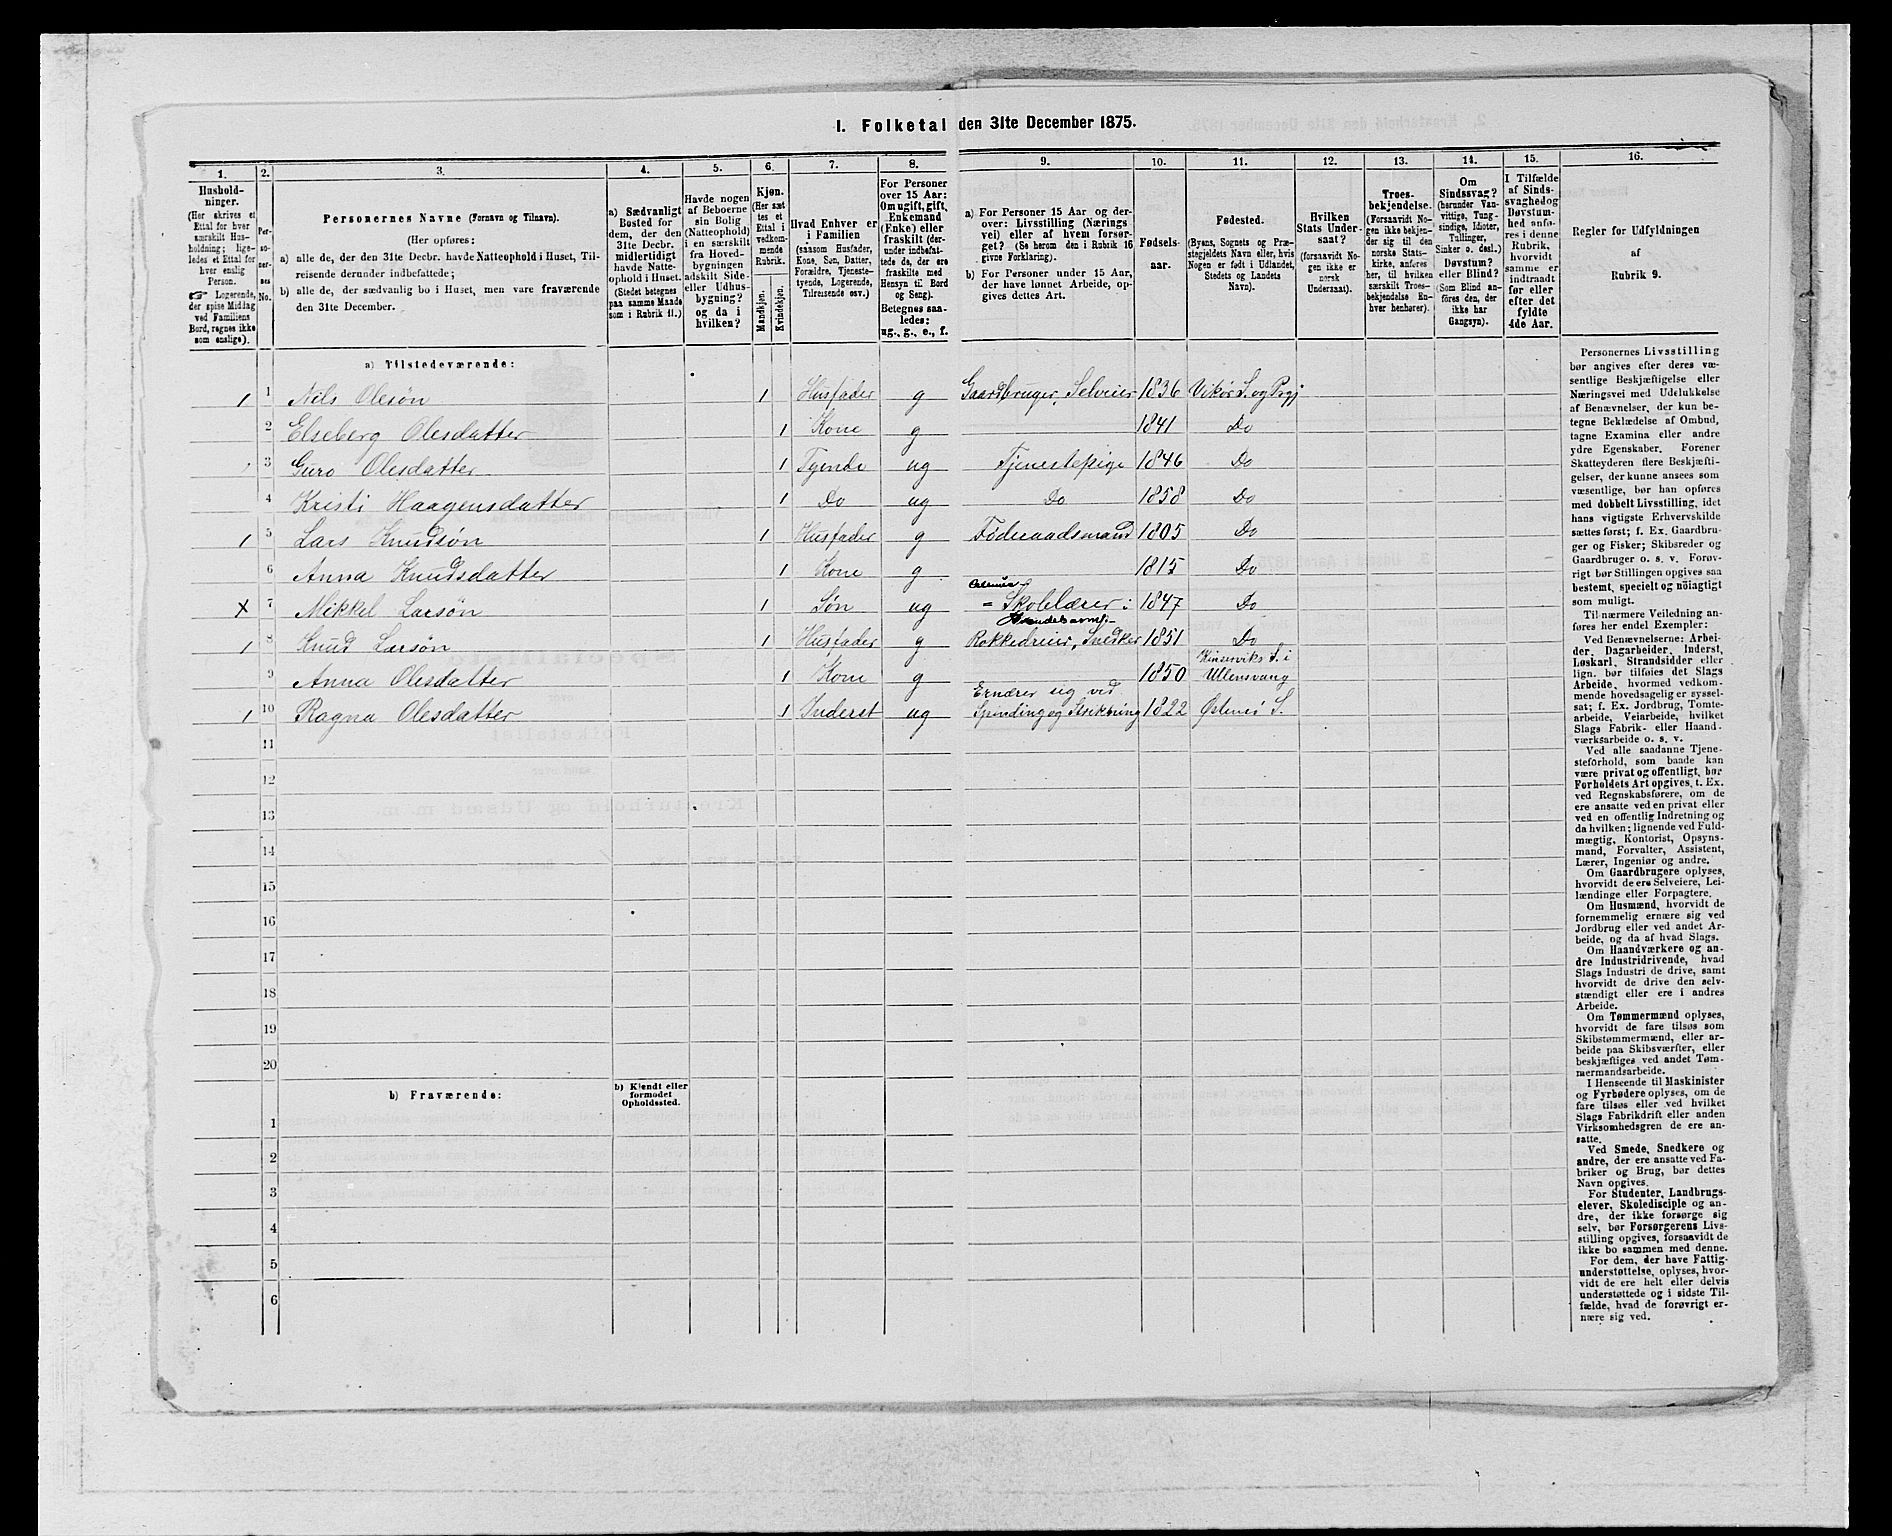 I. Folketal den 31te December 1875.
1. 2. 3. 4. 5. 6. 7. 8. 9. 10. 11. 12. 13. 14. 15. 16.
Hushold-
ninger.
(Her skrives et
Ettal for hver
særskilt Hus-
holdning; lige-
ledes et Ettal for
hver enslig
Person.
☞ Logerende,
der spise Middag
ved Familiens
Bord, regnes ikke
som enslige).
Per-
so-
ner-
nes
No.
Personernes Navne (Fornavn og Tilnavn).
(Her opføres:
a) alle de, der den 31te Decbr. havde Natteophold i Huset, Til-
reisende derunder indbefattede;
b) alle de, der sædvanlig bo i Huset, men vare fraværende
den 31te December.
a) Sædvanligt
Bosted for
dem, der den
31te Decbr.
midlertidigt
havde Natte-
ophold i Huset.
(Stedet betegnes
paa samme Maade
som i Rubrik 11.)
Havde nogen
af Beboerne
sin Bolig
(Natteophold)
i en særskilt
fra Hoved-
bygningen
adskilt Side-
eller Udhus-
bygning?
og da i
hvilken?
Kjøn.
(Her sæt-
tes et
Ettal i
vedkom-
mende
Rubrik.
Mandkjøn.
Kvindekjøn.
Hvad Enhver er
i Familien
(saasom Husfader,
Kone, Søn, Datter,
Forældre, Tjeneste-
tyende, Logerende,
Tilreisende osv.)
For Personer
over 15 Aar:
Om ugift, gift,
Enkemand
(Enke) eller
fraskilt (der-
under indbefat-
tede de, der ere
fraskilte med
Hensyn til Bord
og Seng).
Betegnes saa-
ledes;
ug., g., e., f.
a) For Personer 15 Aar og der-
over: Livsstilling (Nærings-
vei) eller af hvem forsør-
get? (Se herom den i Rubrik 16
givne Forklaring).
b) For Personer under 15 Aar,
der have lønnet Arbeide, op-
gives dettes Art.
Fødsels-
aar.
Fødested.
(Byens, Sognets og Præ-
stegjeldets Navn eller, hvis
Nogen er født i Udlandet,
Stedets og Landets
Navn).
Hvilken
Stats Under-
saat?
(forsaavidt No-
gen ikke er
norsk
Undersaat).
Troes-
bekjendelse.
(Forsaavidt No-
gen ikke bekjen-
der sig til den
norske Stats-
kirke, anføres
her, til hvilken
særskilt Troes-
bekjendelse En-
hver henhører).
Om
Sindssvag?
(herunder Van-
vittige, Tung-
sindige, Idioter,
Tullinger,
Sinker o. desl.)
Døvstum?
eller Blind?
(Som Blind an-
føres den, der
ikke har
Gangsyn).
I Tilfælde
af Sinds-
svaghed og
Døvstum-
hed anfø-
res i denne
Rubrik,
hvorvidt
samme er
indtraadt
før eller
efter det
fyldte
4de Aar.
Regler for Udfyldningen
af
Rubrik 9.
a) Tilstedeværende:
1 1 Nils Olesøn 1 Husfader g Gaardbruger, Selveier 1836 Vikør S. og Prgj
2 Elseberg Olesdatter 1 Kone g 1841 Do
3 Guro Olesdatter 1 Tyende ug Tjenestepige 1846 Do
4 Kristi Haagensdatter 1 Do ug Do 1858 Do
1 5 Lars Knudsøn 1 Husfader g Föderaadsmand 1805 Do
6 Anna Knudsdatter 1 Kone g 1815 Do
x 7 Mikkel Larsøn 1 Søn ug = Skolelærer i 1847 Do
1 8 Knud Larsøn 1 Husfader g Rokkedreier, Snedker 1851 Do
9 Anna Olesdatter 1 Kone g 1850 Kinserviks S. i
Ullensvang
1 10 Ragna Olesdatter 1 Inderst ug Ernærer sig ved
Spinding og Strikning 1822 Østensø S.
11
12
13
14
15
16
17
18
19
20
b) Fraværende:
b) Kjendt eller
formodet
Opholdssted.
1
2
3
4
5
6
Personernes Livsstilling
bør angives efter deres væ-
sentlige Beskjæftigelse eller
Næringsvei med Udelukkelse
af Benævnelser, der kun be-
tegne Beklædelse af Ombud,
tagne Examina eller andre
ydre Egenskaber. Forener
Skatteyderen flere Beskjæfti-
gelser, der kunne ansees som
væsentlige, bør han opføres
med dobbelt Livsstilling, idet
hans vigtigste Erhvervskilde
sættes først; f. Ex. Gaardbru-
ger og Fisker; Skibsreder og
Gaardbruger o. s. v. Forøv-
rigt bør Stillingen opgives saa
bestemt, specielt og nöiagtigt
som muligt.
Til nærmere Veiledning an-
føres her endel Exempler:
Ved Benævnelserne: Arbei-
der, Dagarbeider, Inderst,
Løskarl, Strandsidder eller
lign. bør tilføies det Slags
Arbeide, hvormed vedkom-
mende hovedsagelig er syssel-
sat; f. Ex. Jordbrug, Tomte-
arbeide, Veiarbeide, hvilket
Slags Fabrik- eller Haand-
værksarbeide o. s. v.
Ved alle saadanne Tjene-
steforhold, som baade kan
være privat og offentligt, bør
Forholdets Art opgives, t. Ex.
ved Regnskabsførere, om de
ere ansatte ved en privat eller
ved en offentlig Indretning og
da hvilken; lignende ved Fuld-
mægtig, Kontorist, Opsyns-
mand, Forvalter, Assistent,
Lærer, Ingeniør og andre.
Om Gaardbrugere oplyses,
hvorvidt de ere Selveiere, Lei-
lændinge eller Forpagtere.
Om Husmænd, hvorvidt de
fornemmelig ernære sig ved
Jordbrug eller ved andet Ar-
beide, og da af hvad Slags.
Om Haandværkere og an-
dre Industridrivende, hvad
Slags Industri de drive, samt
hvorvidt de drive den selv-
stændigt eller ere i andres
Arbeide.
Om Tømmermænd oplyses,
hvorvidt de fare tilsøs som
Skibstømmermænd, eller ar-
beide paa Skibsværfter, eller
beskjæftiges ved andet Tøm-
mermandsarbeide.
I Henseende til Maskinister
og Fyrbødere oplyses, om de
fare tilsøs eller ved hvilket
Slags Fabrikdrift eller anden
Virksomhedsgren de ere an-
satte.
Ved Smede, Snedkere og
andre, der ere ansatte ved Fa-
briker og Brug, bør dettes
Navn opgives.
For Studenter, Landbrugs-
elever, Skoledisciple og an-
dre, der ikke forsørge sig
selv, bør Forsørgerens Livs-
stilling opgives, forsaavidt de
ikke bo sammen med denne.
For dem, der have Fattig-
understøttelse, oplyses, hvor-
vidt de ere helt eller delvis
understøttede og i sidste Til-
fælde, hvad de forøvrigt er-
nære sig ved.